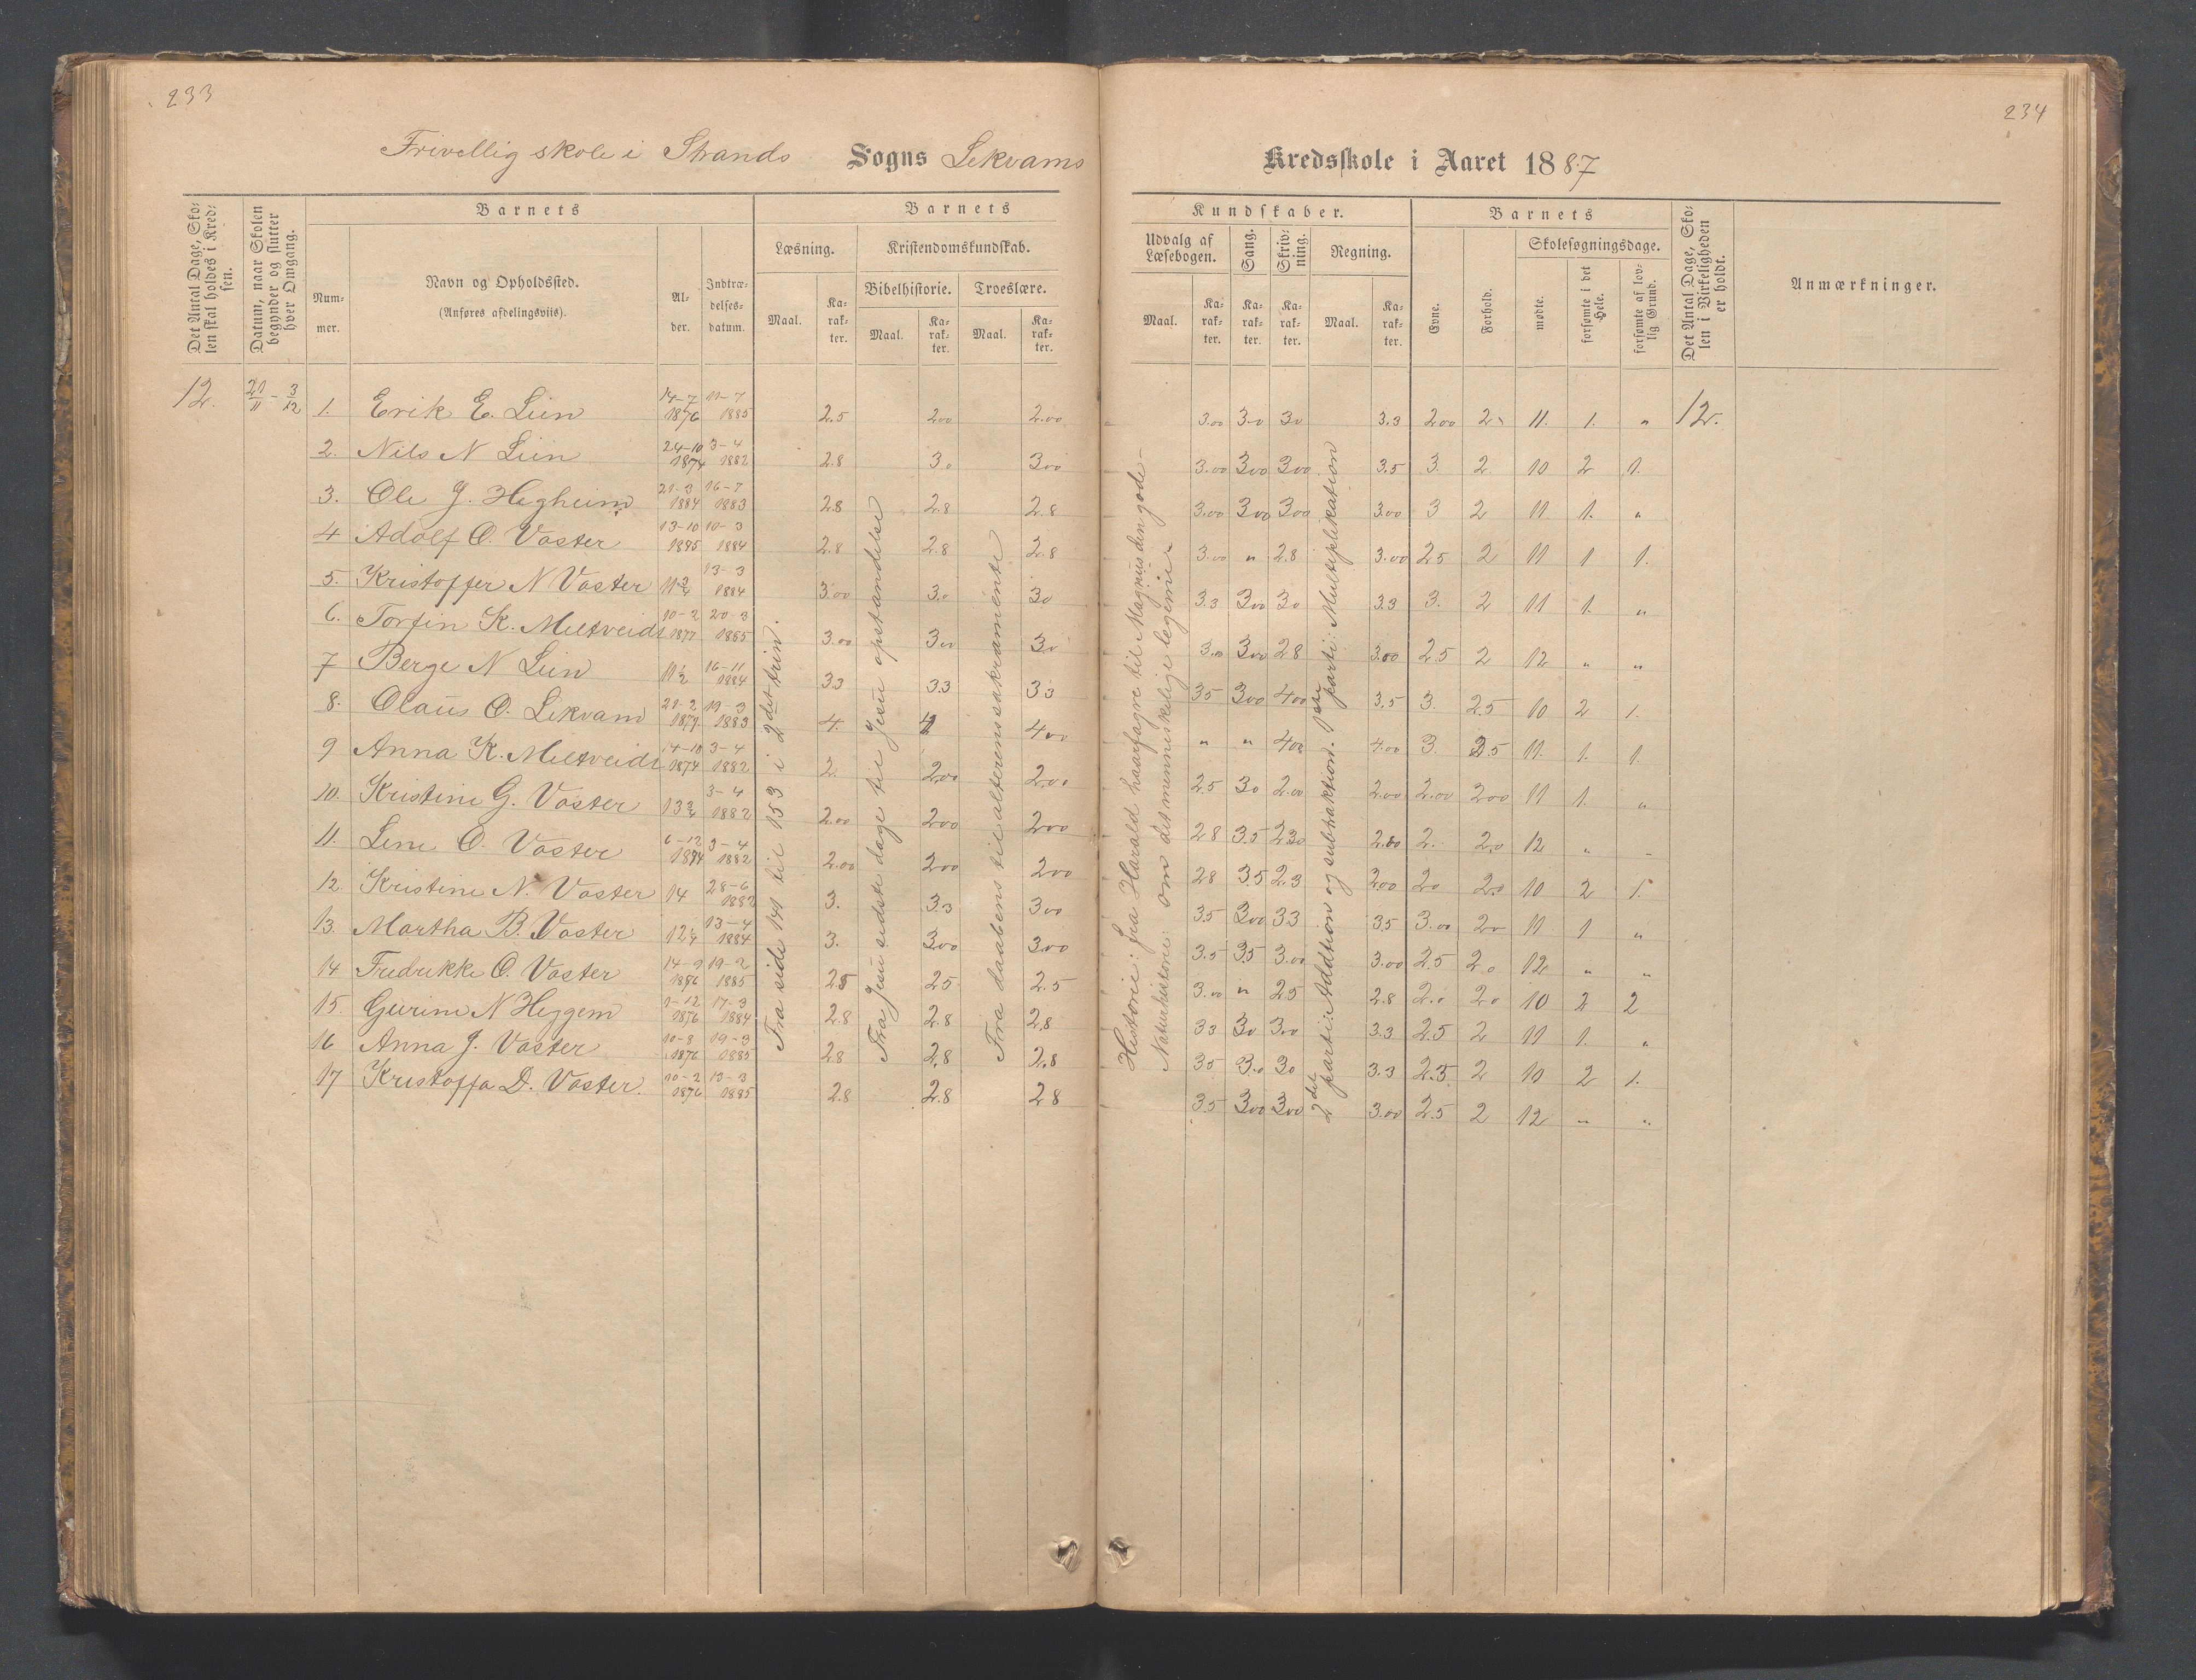 233
234
Frivellig skole i Strands Sogns Lekvams Kredsskole i Aaret 1887
Det Antal Dage, Skolen skal holdes i Kredsen.
Datum, naar Skolen begynder og slutter hver Omgang.
Barnets
Nummer.
Navn og Opholdssted.
(Anføres afdelingsviis).
Alder.
Indtrædelsesdatum.
Barnets
Læsning.
Maal.
Karakter.
Kristendomskundskab.
Bibelhistorie.
Maal.
Karakter.
Troeslære.
Maal.
Karakter.
Kundskaber.
Udvalg af Læsebogen.
Maal.
Karakter.
Sang.
Karakter.
Skrivning.
Karakter.
Regning.
Maal.
Karakter.
Barnets
Evne.
Forhold.
Skolesøgningsdage.
mødte.
forsømte i det Hele.
forsømte af lovlig Grund.
Det Antal Dage, Skolen i Virkeligheden er holdt.
Anmærkninger.
12. 21/11 - 3/12
1. Erik E. Lien 14-7 1876 11-7 1885 2.5 2.00 2.00 3.00 3.0 3.0 3.3 2.00 2 11. 1. " 12.
2. Nils N Lien 24-10 1874 3-4 1882 2.8 3.0 3.00 3.00 3.00 3.00 3.5 3. 2. 10 2 1.
3. Ole J. Hegheim 21-3 1884 16-7 1883 2.8 2.8 2.8 3.00 3.00 3.00 3.00 3 2 11 1. "
4 Adolf O. Vaster 13-10 10-3 1884 2.8 2.8 2.8 3.00 " 2.8 3.00 2.5 2 11 1 1.
5. Kristoffer N Vaster 13-3 1884 3.00 3.0 3.0 3.3 3.00 3.0 3.3 3. 2 11 1. "
6. Torfin K. Meltveidt 10-2 1877 20-3 1885 3.00 3.00 3.0 3.00 3.00 2.8 3.00 2.5 2 12 " "
7 Berge N Lien 11 1/2 16-11 1884 3.3 3.3 3.3 3.5 3.00 4.00 3.5 3. 2.5 10 2 1.
8. Olaus O. Lekvam 21-2 19-3 1883 4. 4 4.00 " " 4.00 4.00 3. 2.5 11. 1. 1.
9 Anna K. Meltveidt 14-10 1874 3-4 1882 2. 2.00 2.00 2.5 3.0 2.00 2.00 2.00 2.00 11 1. "
10. Kristine G. Vaster 13 3/4 3-4 1882 2.00 2.00 2.00 2.8 3.5 2.00 2. 2.0 12 "
11. Lene O. Vaster 6-12 3-4 1882 2.00 2.00 2.00 2.8 3.5 2.3 2.00 2.0 2.0 10 2 1.
12. Kristine N. Vaster 14 28-6 1882 3. 3.3 3.00 3.5 3.00 3.3 3.5 3.00 2.0 11 1 "
13. Martha B. Vaster 12 1/4 13-4 1884 3. 3.00 3.00 3.5 3.5 3.00 3.00 2.5 2.0 12 " "
14 Fredrikke O. Vaster 14-9 1876 19-2 1885 2.5 2.5 2.5 3.00 " 2.5 2.8 2.0 2.0 10 2 2
15. Gurine N Heggem 1-12 1876 17-3 1884 2.8 2.8 2.8 3.3 3.0 3.00 3.3 2.5 2 11 1. "
16 Anna J. Vaster 10-8 1876 19-3 1885 2.8 2.8 2.8 3.5 3.0 3.0 3.3 2.5 2 10 2 1.
17 Kristoffa D. Vaster. 10-2 1876 13-3 1885 2.8 2.8 2.8 3.5 3.00 3.00 3.00 2.5 2 12 " "
Fra side 141 til 153 i 2det trin.
Fra Jesu sidste dage til Jesu opstandelse
Fra daabens til alterens sakramente
Historie: fra Harald haarfagre til Magnus den gode-
Naturhistorie: om det menneskelige legeme
2det parti: Addtion og subtraktion. 1ste parti: Multiplikation